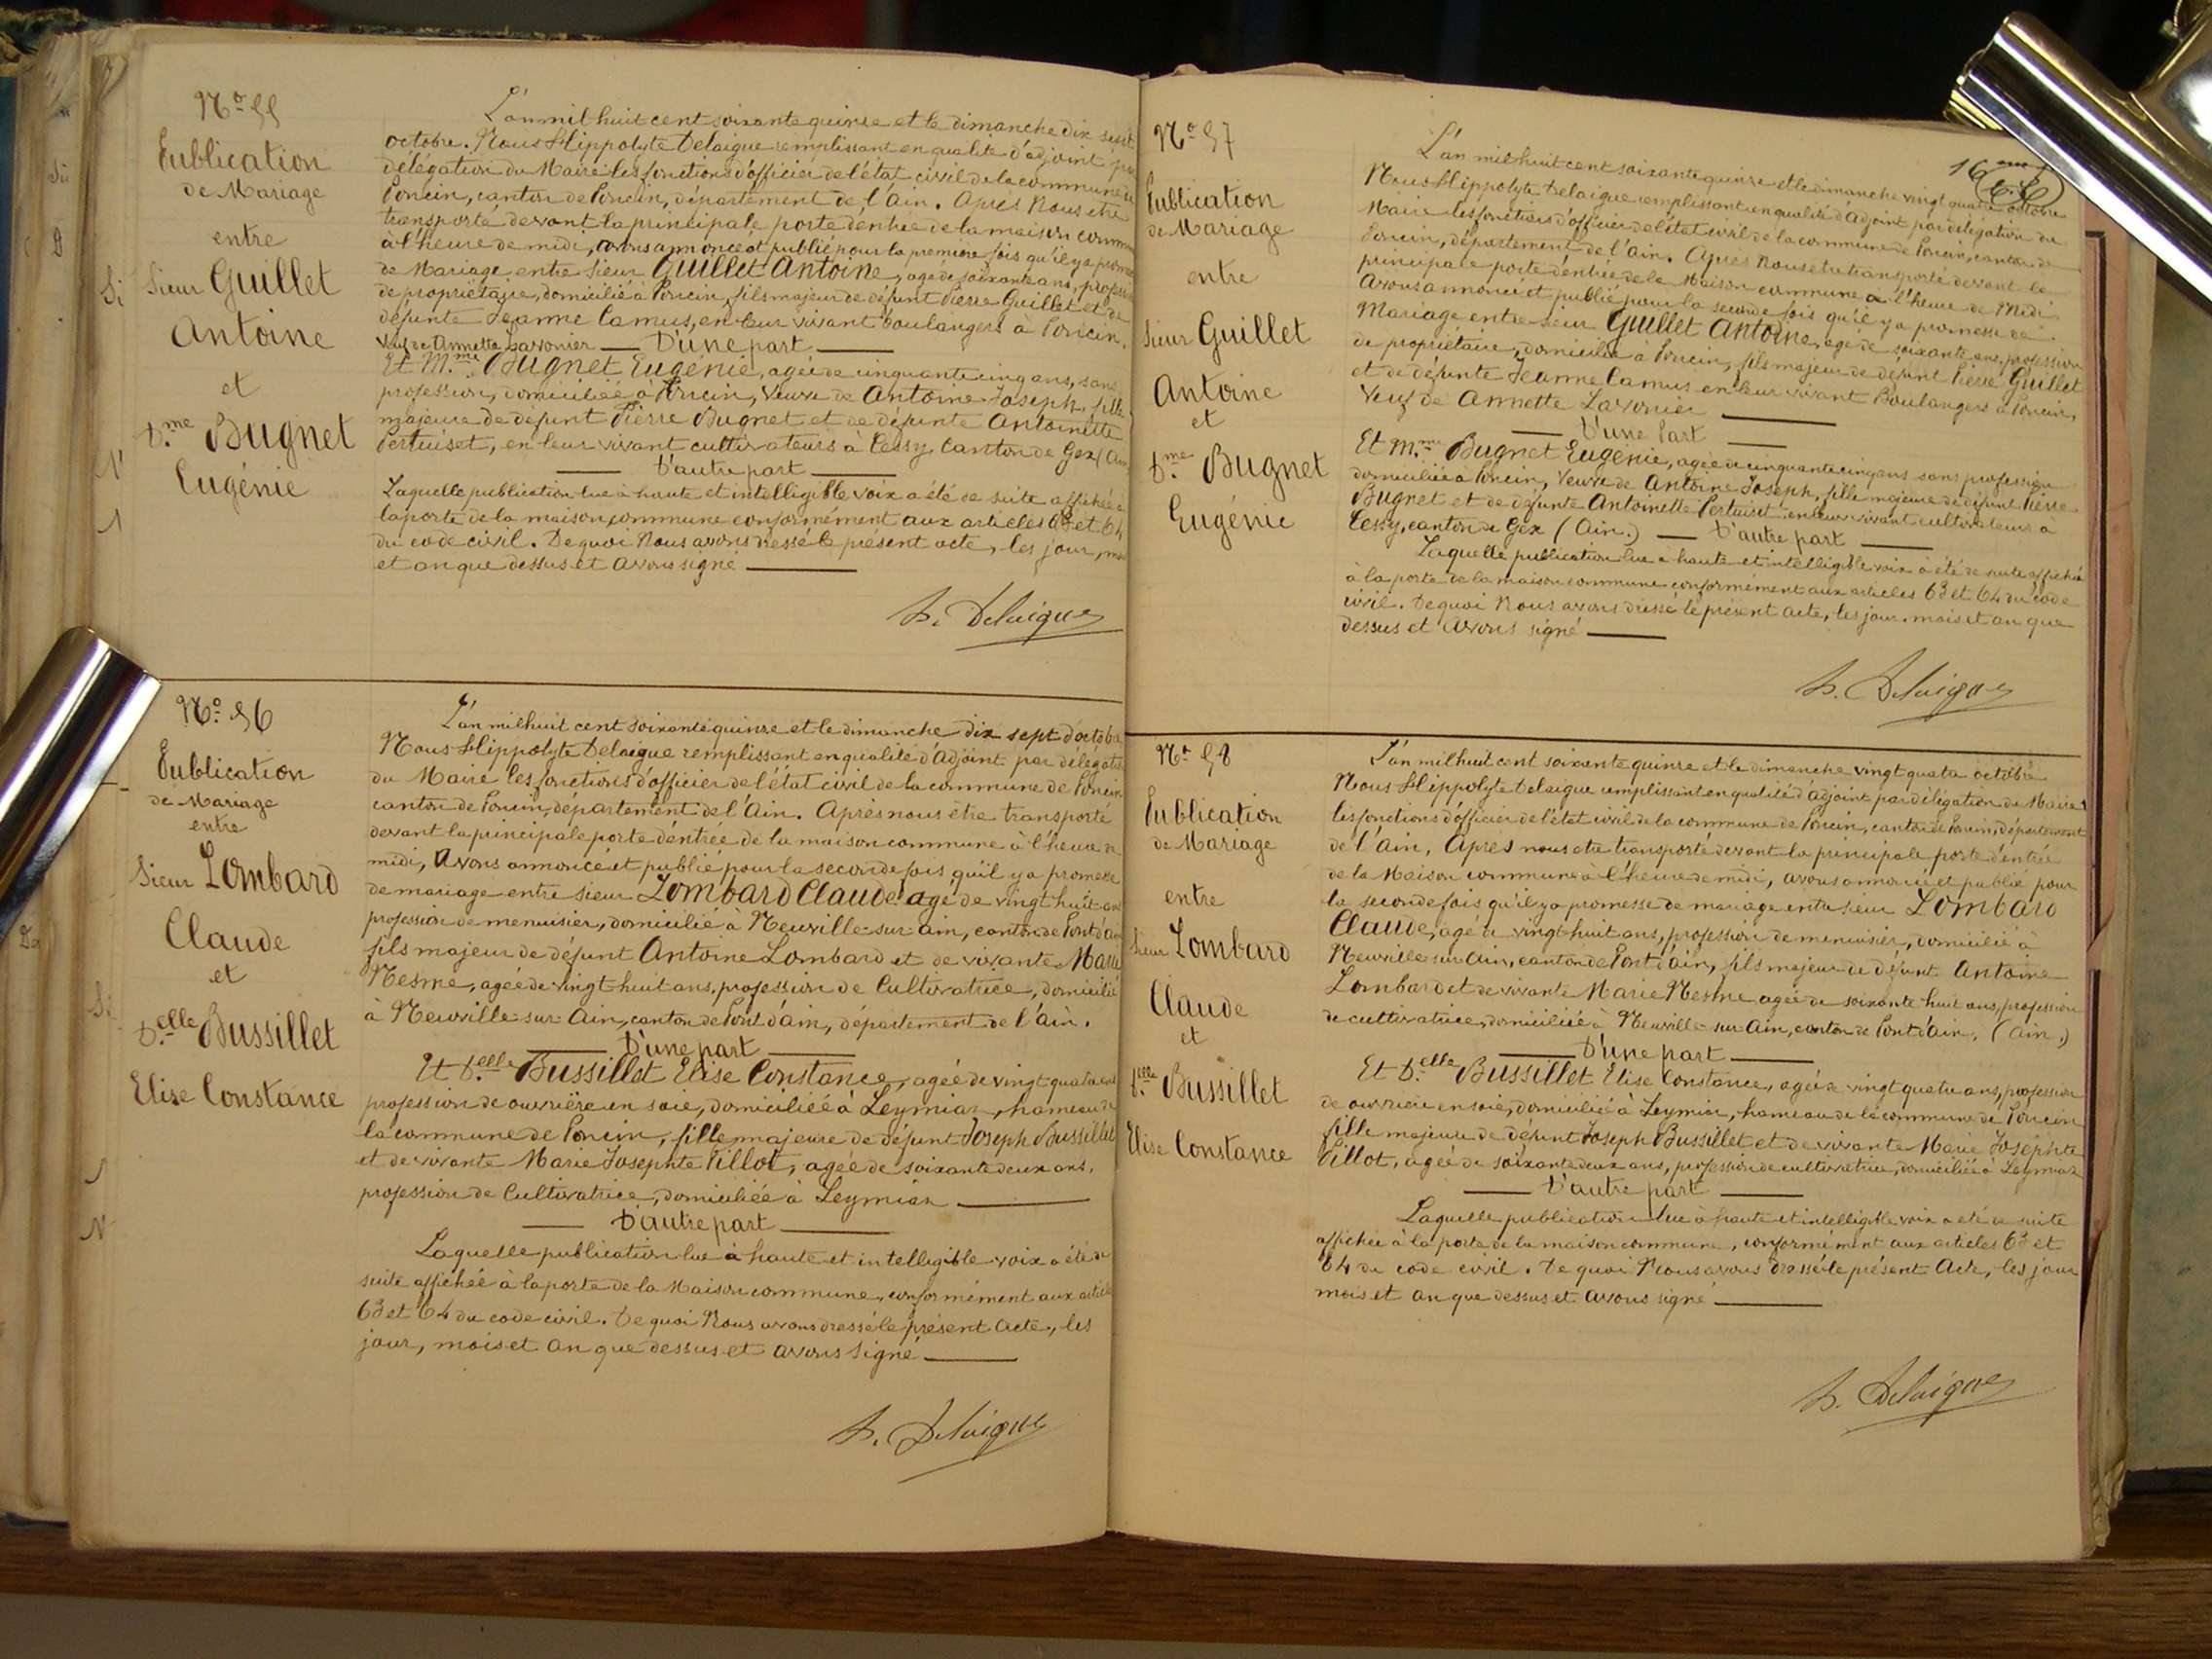 No 55
Publication
de Mariage
entre
Sieur Guillet
Antoine
et
D.me Bugnet
Eugénie
L'an mil huit cent soixante quinze et le dimanche dix sept
octobre. Nous Hippolyte Delaigue remplissant en qualité d'adjoint par
délégation du Maire les fonctions d'officier de l'état civil de la commune de
Poncin, canton de Poncin, département de l'Ain. Après Nous etre
transporté devant la principale porte d'entrée de la maison commune
à l'heure de midi, avons annoncé et publié pour la première fois qu'il y a promesse
de Mariage entre Sieur Guillet Antoine, agé de soixante ans, profession
de propriétaire, domicilié à Poncin, fils majeur de défunt Pierre Guillet et de
défunte Jeanne Camus, en leur vivant boulangers à Poncin.
Veuf de Annette Lavonier — D'une part —
Et M.me Bugnet Eugénie, agée de cinquante cinq ans, sans
profession, domiciliée à Poncin, Veuve de Antoine Joseph, fille
majeure de défunt Pierre Bugnet et de défunte Antoinette
Pertuiset, en leur vivant cultivateurs à Cessy, Canton de Gex (Ain)
— D'autre part —
Laquelle publication lue à haute et intelligible voix a été de suite affichée à
la porte de la maison commune conformément aux articles 63 et 64
du code civil. De quoi Nous avons dressé le présent acte, les jour, mois
et an que dessus et avons signé —
H. Delaigue
No 56
Publication
de Mariage
entre
Sieur Lombard
Claude
et
D.elle Bussillet
Elise Constance
L'an mil huit cent soixante quinze et le dimanche dix sept d'octobre
Nous Hippolyte Delaigue remplissant en qualité d'Adjoint par délégation
du Maire les fonctions d'officier de l'état civil de la commune de Poncin
canton de Poncin, département de l'Ain. Après nous être transporté
devant la principale porte d'entrée de la maison commune à l'heure de
midi, Avons annoncé et publié pour la seconde fois qu'il y a promesse
de mariage entre sieur Lombard Claude agé de vingt huit ans
profession de menuisier, domicilié à Neuville-sur-Ain, canton de Pont d'Ain
fils majeur de défunt Antoine Lombard et de vivante Marie
Nesme, agée de vingt-huit ans, profession de Cultivatrice, domiciliée
à Neuville-sur-Ain, canton de Pont d'Ain, département de l'Ain.
— D'une part —
Et D.elle Bussillet Elise Constance, agée de vingt quatre ans
profession de ouvrière en soie, domiciliée à Leymiar, hameau de
la commune de Poncin, fille majeure de défunt Joseph Bussillet
et de vivante Marie Josephte Pillot, agée de soixante deux ans,
profession de Cultivatrice, domiciliée à Leymiar —
— D'autre part —
Laquelle publication lue à haute et intelligible voix a été de
suite affichée à la porte de la Maison commune, conformément aux articles
63 et 64 du code civil. De quoi Nous avons dressé le présent Acte, les
jour, mois et an que dessus et avons signé —
H. Delaigue
No 57
Publication
de Mariage
entre
Sieur Guillet
Antoine
et
D.me Bugnet
Eugénie
L'an mil huit cent soixante quinze et le dimanche vingt quatre octobre
Nous Hippolyte Delaigue remplissant en qualité d'Adjoint par délégation du
Maire les fonctions d'officier de l'état civil de la commune de Poncin, canton de
Poncin, département de l'Ain. Après Nous etre transporté devant la
principale porte d'entrée de la Maison commune à l'heure de Midi
Avons annoncé et publié pour la seconde fois qu'il y a promesse de
Mariage entre sieur Guillet Antoine, agé de soixante ans, profession
de propriétaire, domicilié à Poncin, fils majeur de défunt Pierre Guillet
et de défunte Jeanne Camus en leur vivant Boulangers à Poncin,
Veuf de Annette Lavonier —
— D'une Part —
Et M.me Bugnet Eugénie, agée de cinquante cinq ans sans profession
domiciliée à Poncin, Veuve de Antoine Joseph, fille majeure de défunt Pierre
Bugnet et de défunte Antoinette Pertuiset en leur vivant cultivateurs à
Cessy, canton de Gex (Ain.) — D'autre part —
Laquelle publication lue à haute et intelligible voix a été de suite affichée
à la porte de la maison commune conformément aux articles 63 et 64 du code
civil. De quoi Nous avons dressé le présent acte, les jour, mois et an que
dessus et Avons signé —
H. Delaigue
No 58
Publication
de Mariage
entre
Sieur Lombard
Claude
et
D.elle Bussillet
Elise Constance
L'an mil huit cent soixante quinze et le dimanche vingt quatre octobre
Nous Hippolyte Delaigue remplissant en qualité d'adjoint par délégation du Maire
les fonctions d'officier de l'état civil de la commune de Poncin, canton de Poncin, département
de l'Ain, Après nous etre transporté devant la principale porte d'entrée
de la Maison commune à l'heure de midi, avons annoncé et publié pour
la seconde fois qu'il y a promesse de mariage entre sieur Lombard
Claude, agé de vingt-huit ans, profession de menuisier, domicilié à
Neuville sur Ain, canton de Pont d'ain, fils majeur de défunt Antoine
Lombard et de vivante Marie Nesme agée de soixante huit ans, profession
de cultivatrice, domiciliée à Neuville-sur-Ain, canton de Pont d'Ain, (Ain,)
— D'une part —
Et D.elle Bussillet Elise Constance, agée de vingt quatre ans, profession
de ouvrière en soie, domiciliée à Leymiar, hameau de la commune de Poncin
fille majeure de défunt Joseph Bussillet et de vivante Marie Josephte
Pillot, agée de soixante deux ans, profession de cultivatrice, domiciliée à Leymiar
— D'autre part —
Laquelle publication lue à haute et intelligible voix a été de suite
affichée à la porte de la maison commune, conformément aux articles 63 et
64 du code civil. De quoi Nous avons dressé le présent Acte, les jour
mois et an que dessus et avons signé —
H. Delaigue